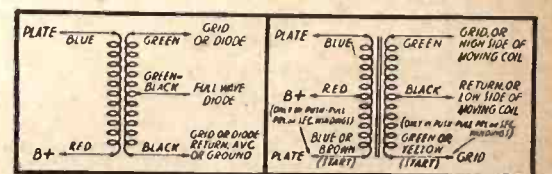 PLATE
BLUE
GREEN
GRID
OR DIODE
GREEN-
BLACK
FULL WAVE
DIODE
B+
RED
BLACK
GRID OR DIODE
RETURN, AVC
OR GROUND
PLATE
BLUE
GREEN
GRID, OR
HIGH SIDE OF
MOVING COIL
B+
RED
BLACK
RETURN, OR
LOW SIDE OF
MOVING COIL
(ONLY IN PUSH-PULL
PRI. OR SEC.
WINDINGS)
(ONLY IN PUSH-PULL PRI. OR SEC.
WINDINGS)
PLATE
BLUE OR
BROWN
(START)
GREEN OR
YELLOW
(START)
GRID